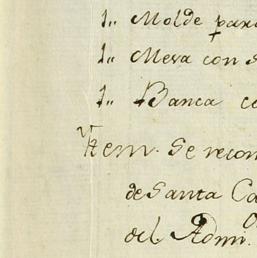 1,, Molde para
1,, Mesa con
1,, Banca
Ytem. Se recon
de Santa Ca
del Admi.